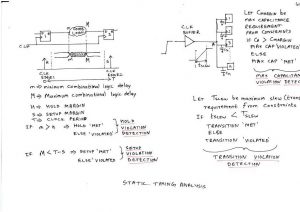 CLK
CLK
EDGE 1
CLK
EDGE 2
m → minimum combinational logic delay
M → Maximum combinational logic delay
H → HOLD MARGIN
S → SETUP MARGIN
T → CLOCK PERIOD
IF m > H → HOLD 'MET'
ELSE 'VIOLATED'
HOLD
VIOLATION
DETECTION
IF M < T-S → SETUP 'MET'
ELSE 'VIOLATED'
SETUP
VIOLATION
DETECTION
CLK
BUFFER
LET CMARGIN BE
MAX CAPACITANCE
REQUIREMENT
FROM CONSTRAINTS
MAX CAP 'VIOLATED'
ELSE
MAX CAP 'MET'
MAX CAPACITAN
VIOLATION DETEC
LET TSLEW be maximum slew
requirement from constraints
IF tSLEW < TSLEW
TRANSITION 'MET'
ELSE
TRANSITION 'VIOLATED'
TRANSITION VIOLATION
DETECTION
STATIC TIMING ANALYSIS